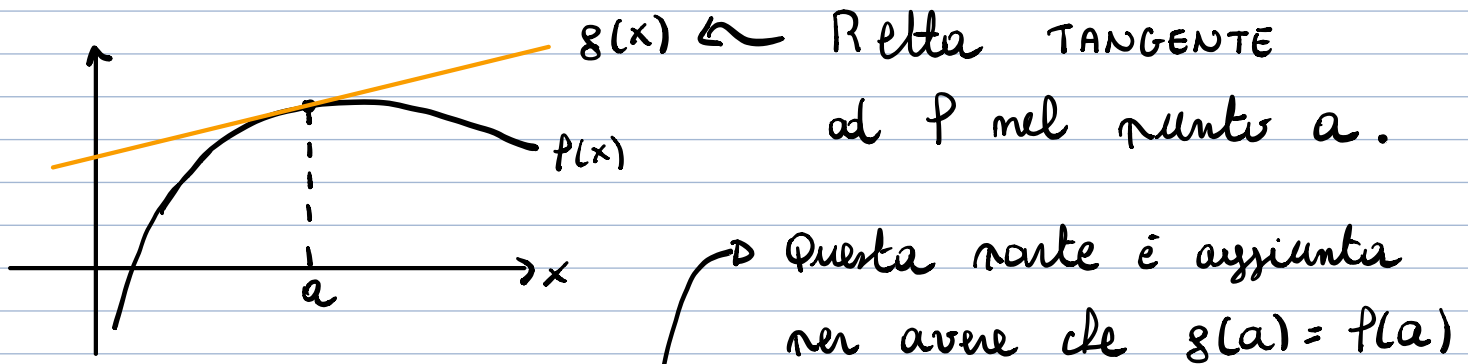 g(x) ← Retta TANGENTE
ad f nel punto a.
f(x)
a
x
Questa parte è aggiunta
per avere che g(a) = f(a)